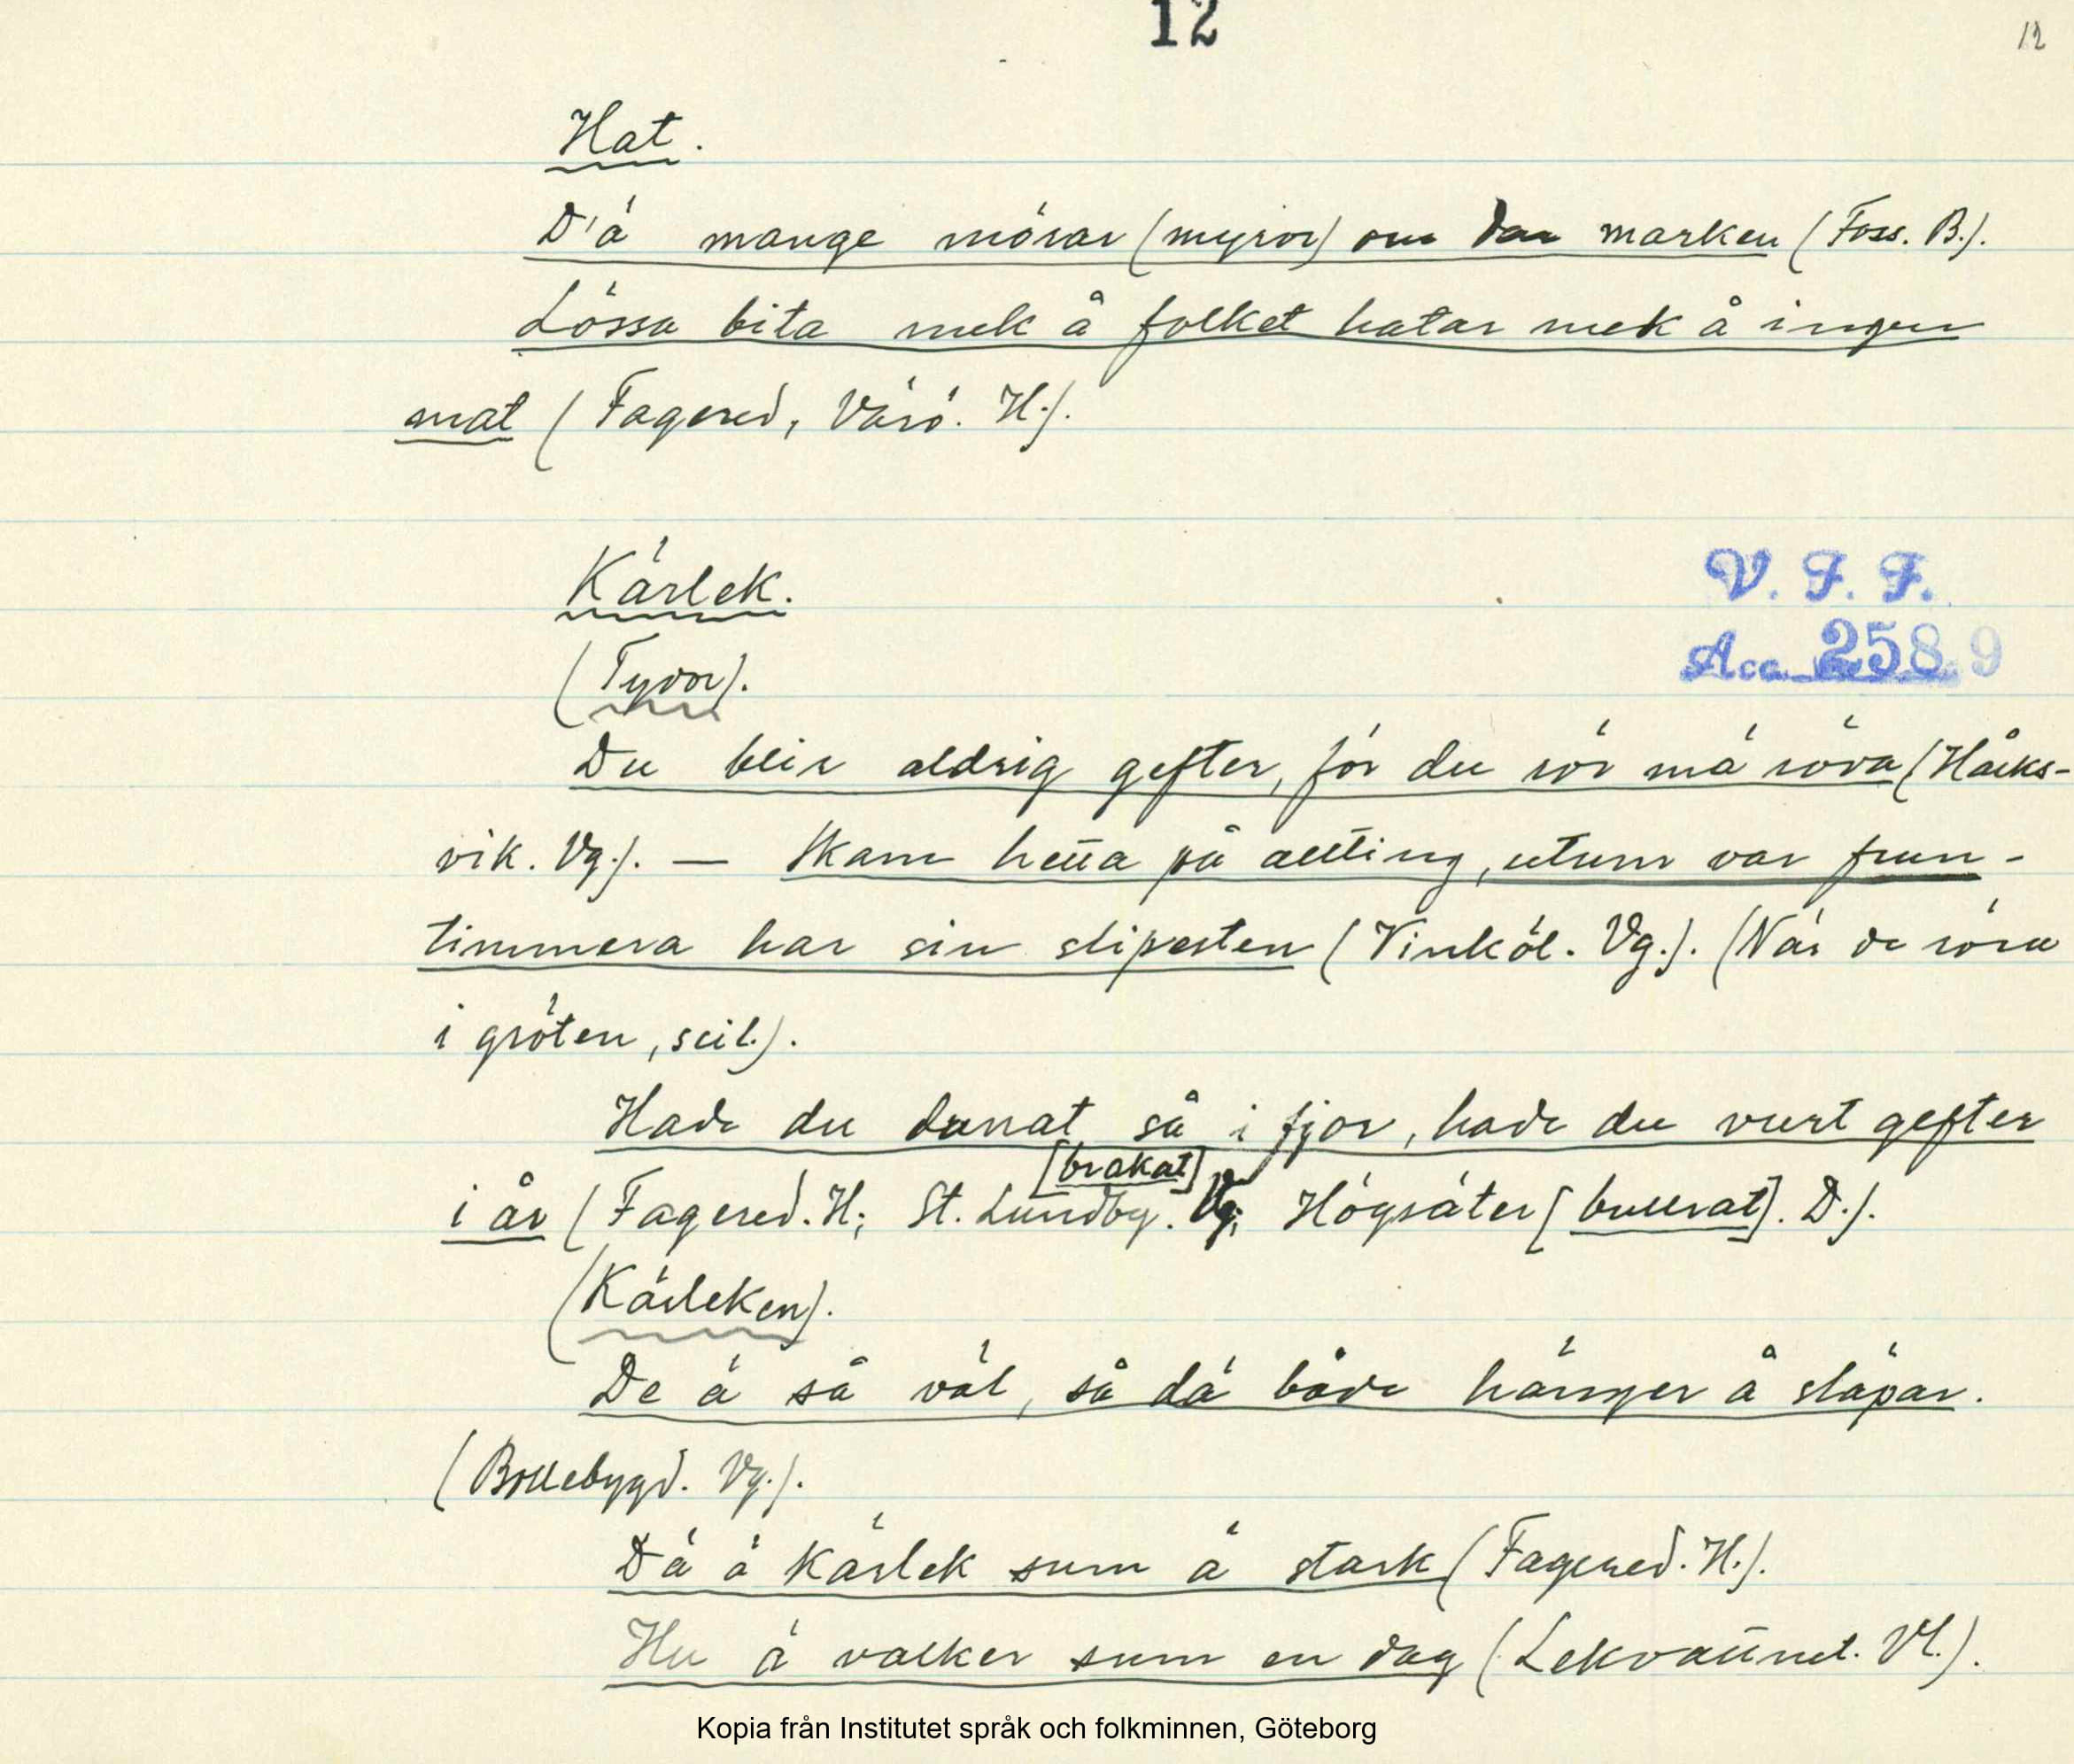 12
12
Hat.
D'ä mange mörar (myror) om dan marken (Foss. B.).
Lössa bita mek å folket hatar mek å ingen
mat (Fagered, Värö. H.).
Kärlek.
V. F. F.
Acc. 2589
(Tyvor).
Du blir aldrig gefter, för du rör mä röva (Håcks-
vik. Vg.). — Skam hella på allting, utum var frun-
timmera har sin slipesten (Vinköl. Vg.). (När de röra
i gröten, scil.).
Hade du dunat så i fjor, hade du vurt gefter
[brakat]
i år (Fagered. H; St. Lundby. Vg; Högsäter [bullrat]. D.).
(Kärleken).
De ä så väl, så dä både hänger å släpar.
(Bollebygd. Vg.).
Dä ä kärlek sum ä stark (Fagered. H.).
Hu ä valker sum en dag (Lekvattnet. Vl.).
Kopia från Institutet språk och folkminnen, Göteborg